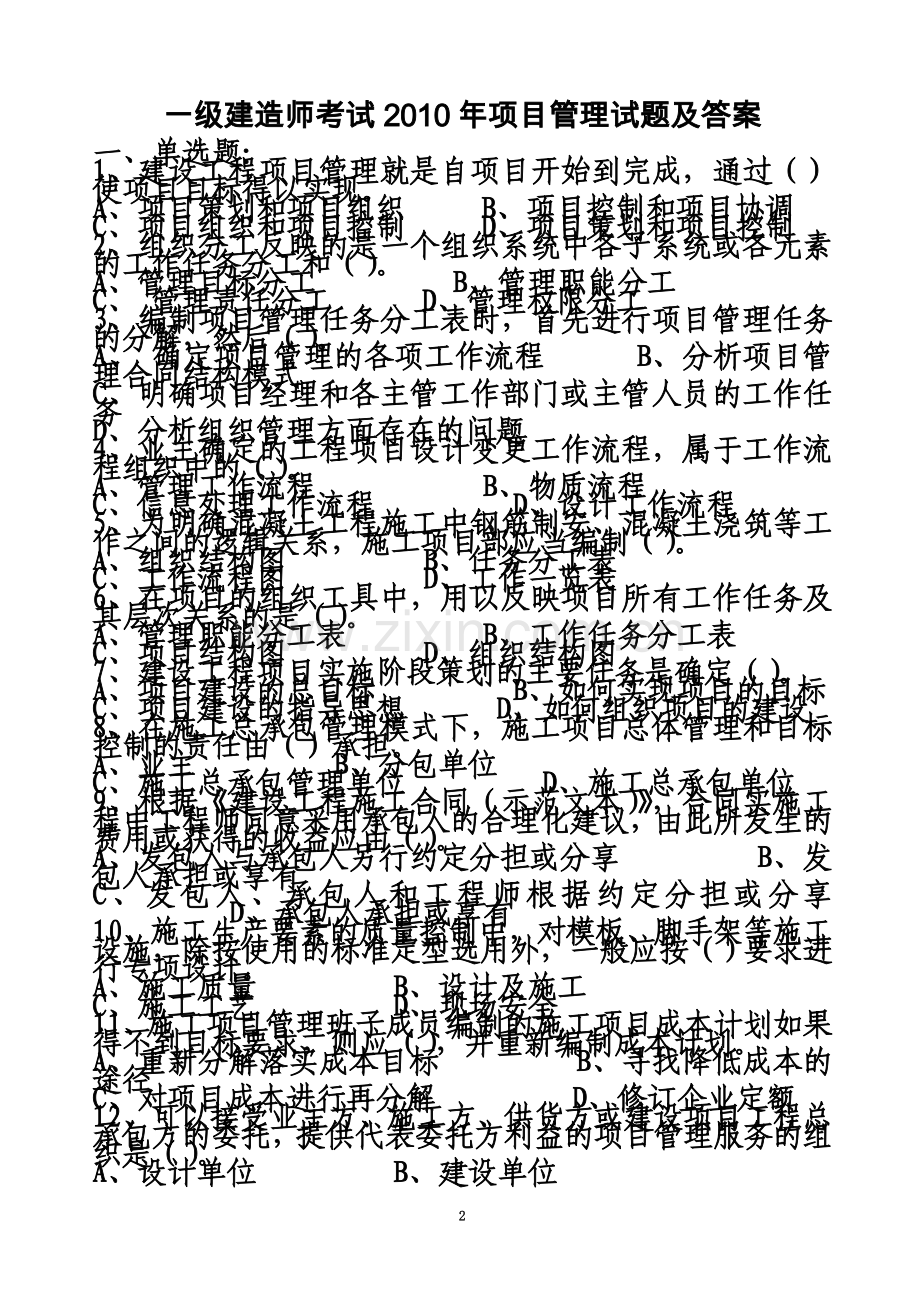 一级建造师考试 2010 年项目管理试题及答案
一、单选题：
1、建设工程项目管理就是自项目开始到完成，通过（ ）
使项目目标得以实现
A、项目策划和项目组织 B、项目控制和项目协调
C、项目组织和项目控制 D、项目策划和项目控制
2、组织分工反映的是一个组织系统中各子系统或各元素
的工作任务分工和（ ）。
A、管理目标分工 B、管理职能分工
C、管理责任分工 D、管理权限分工
3、编制项目管理任务分工表时，首先进行项目管理任务
的分解，然后（ ）。
A、确定项目管理的各项工作流程 B、分析项目管
理合同结构模式
C、明确项目经理和各主管工作部门或主管人员的工作任
务
D、分析组织管理方面存在的问题
4、业主确定的工程项目设计变更工作流程，属于工作流
程组织中的（ ）。
A、管理工作流程 B、物质流程
C、信息处理工作流程 D、设计工作流程
5、为明确混凝土工程施工中钢筋制安、混凝土浇筑等工
作之间的逻辑关系，施工项目部应当编制（ ）。
A、组织结构图 B、任务分工表
C、工作流程图 D、工作一览表
6、在项目的组织工具中，用以反映项目所有工作任务及
其层次关系的是（ ）。
A、管理职能分工表 B、工作任务分工表
C、项目结构图 D、组织结构图
7、建设工程项目实施阶段策划的主要任务是确定（ ）。
A、项目建设的总目标 B、如何实现项目的目标
C、项目建设的指导思想 D、如何组织项目的建设
8、在施工总承包管理模式下，施工项目总体管理和目标
控制的责任由（ ）承担。
A、业主 B、分包单位
C、施工总承包管理单位 D、施工总承包单位
9、根据《建设工程施工合同（示范文本）》，合同实施工
程由工程师同意采用承包人的合理化建议，由此所发生的
费用或获得的收益应由（ ）。
A、发包人与承包人另行约定分担或分享 B、发
包人承担或享有
C、发包人、承包人和工程师根据约定分担或分享
D、承包人承担或享有
10、施工生产要素的质量控制中，对模板、脚手架等施工
设施，除按使用的标准定型选用外，一般应按（ ）要求进
行专项设计
A、施工质量 B、设计及施工
C、施工工艺 D、现场安全
11、施工项目管理班子成员编制的施工项目成本计划如果
得不到目标要求，则应（ ），并重新编制成本计划。
A、重新分解落实成本目标 B、寻找降低成本的
途径
C、对项目成本进行再分解 D、修订企业定额
12、可以接受业主方、施工方、供货方或建设项目工程总
承包方的委托，提供代表委托方利益的项目管理服务的组
织是（ ）。
A、设计单位 B、建设单位
2